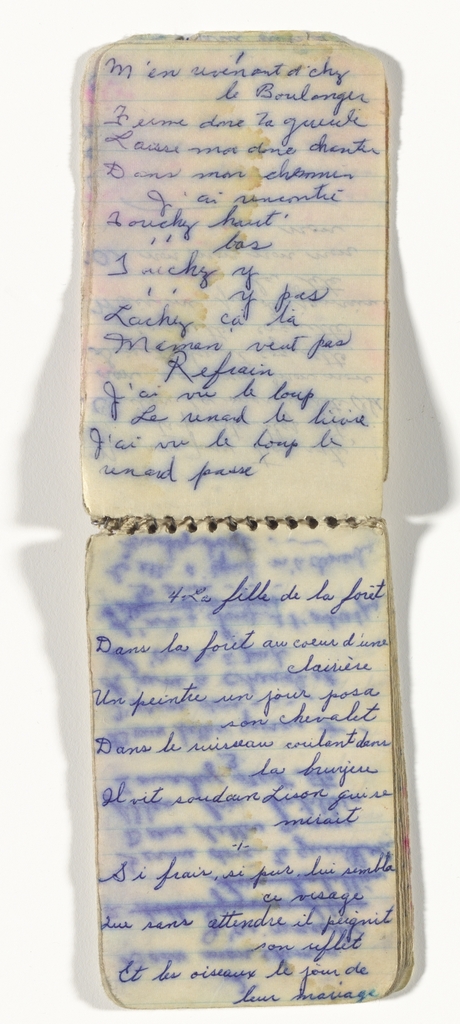 M'en revénant d'chy
le Boulanger
Ferme donc ta gueule
Laisse moi donc chanter
Dans mon chemin
J'ai rencontré
Touchy haut
'' bas
Touchy y
'' y pas
Lachy ca là
Maman veut pas
Refrain
J'ai vu le loup
Le renard le lièvre
J'ai vu le loup le
renard passé
4-La fille de la forêt
Dans la forêt au coeur d'une
clairière
Un peintre un jour posa
son chevalet
Dans le ruisseau coulant dans
la bruyère
Il vit soudain Lison qui se
mirait
-+-
Si frais, si pur lui sembla
ce visage
Que sans attendre il peignit
son reflet
Et les oiseaux le jour de
leur mariage